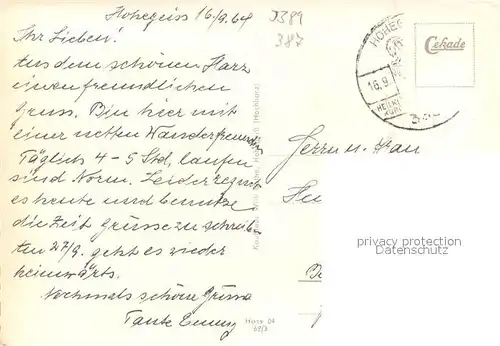 Hohegeiss 16/9.64
J389
387
Ihr Lieben!
Aus dem schönen Harz
einen freundlichen
Gruss. Bin hier mit
einer netten Wanderfreundin
Täglich 4-5 Std. laufen
sind Norm. Leider regnet
es heute und benutze
die Zeit Grüsse zu schreib
Am 27/9. geht es wieder
heimwärts.
Nochmals schöne Grüsse
Tante Emmy
Harz 04
HOHEG
16.9.
Cekade
Herrn u. Frau
privacy protection
Datenschutz